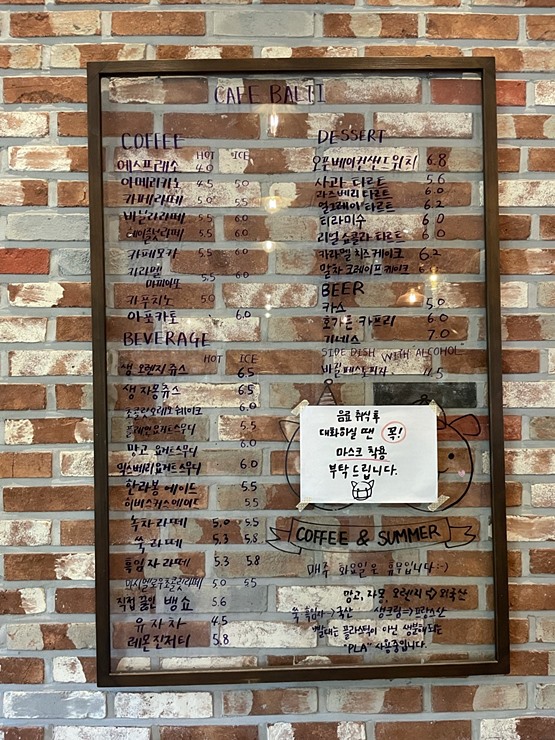 CAFE BALII
COFFEE
HOT ICE
에스프레소 4.0
아메리카노 4.5 5.0
카페라떼 5.0 5.5
바닐라라떼 5.5 6.0
헤이즐넛라떼 5.5 6.0
카페모카 5.5 6.0
카라멜
마끼아또 5.5 6.0
카푸치노 5.0
아포카토 6.0
BEVERAGE
HOT ICE
생 오렌지 쥬스 6.5
생 자몽쥬스 6.5
초콜릿오레오 쉐이크 6.0
플레인요거트스무디
망고 요거트스무디 6.0
믹스베리요거트스무디 6.0
한라봉에이드 5.5
히비스커스에이드 5.5
녹차라떼 5.0 5.5
쑥라떼 5.3 5.8
흑임자라떼 5.3 5.8
마시멜로우초콜릿라떼 5.0 5.5
직접 끓인 뱅쇼 5.6
유자차 4.5
레몬진저티 5.8
DESSERT
오픈베이컨샌드위치 6.8
사과 타르트 5.6
라즈베리 타르트 6.0
얼그레이 타르트 6.2
티라미수 6.0
리얼 쇼콜라 타르트 6.0
카라멜 치즈케이크 6.2
말차 크레이프케이크
BEER
카스 5.0
호가든 카프리 6.0
기네스 7.0
SIDE DISH WITH ALCOHOL
바질페스토피자
음료 취식 후
대화하실 땐 꼭!
마스크 착용
부탁드립니다.
COFFEE & SUMMER
매주 화요일은 휴무입니다:-)
망고, 자몽, 오렌지 ⇨ 외국산
쑥, 흑임자 → 국산 생크림 ⇨ 프랑스산
빨대는 플라스틱이 아닌 생분해되는
"PLA" 사용중입니다.